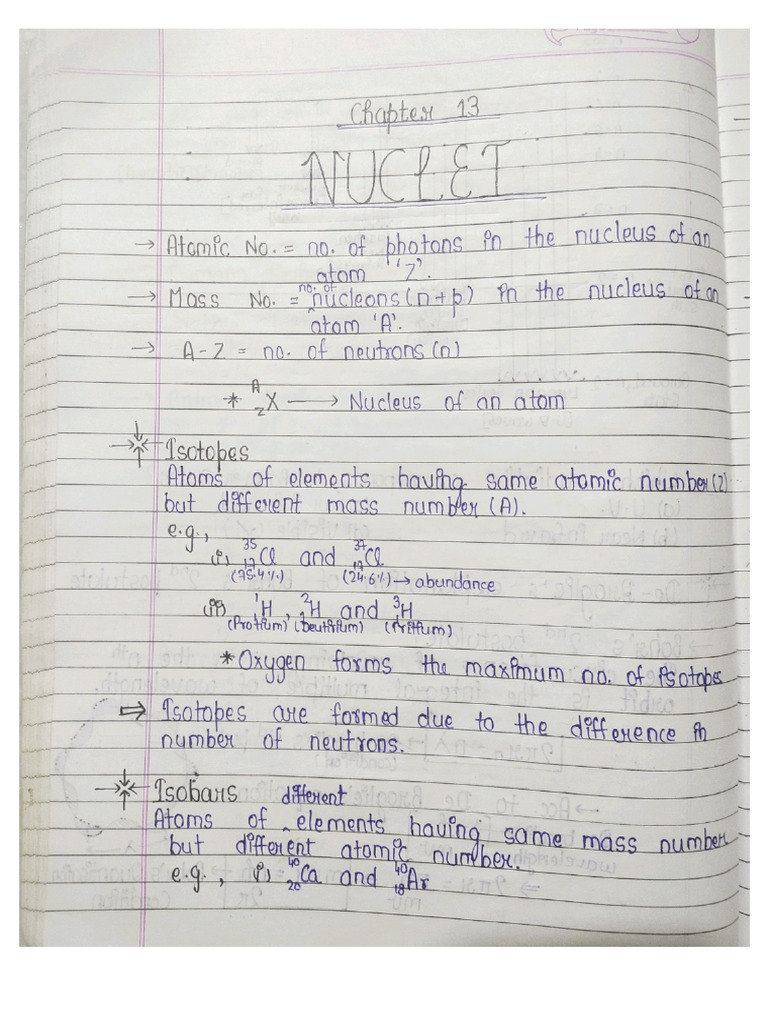 Chapter 13
NUCLEI
→ Atomic No. = no. of photons in the nucleus of an
atom 'Z'.
→ Mass No. = no. of nucleons (n+p) in the nucleus of an
atom 'A'.
→ A-Z = no. of neutrons (n)
* ᴬ_Z X → Nucleus of an atom
Isotopes
Atoms of elements having same atomic number (Z)
but different mass number (A).
e.g., (i) ³⁵₁₇Cl and ³⁷₁₇Cl
(75.4%) (24.6%) → abundance
(ii) ¹H, ²H and ³H
(Protium) (Deutrium) (Tritium)
* Oxygen forms the maximum no. of isotopes
⇒ Isotopes are formed due to the difference in
number of neutrons.
Isobars
Atoms of different elements having same mass number
but different atomic number.
e.g., (i) ⁴⁰₂₀Ca and ⁴⁰₁₈Ar